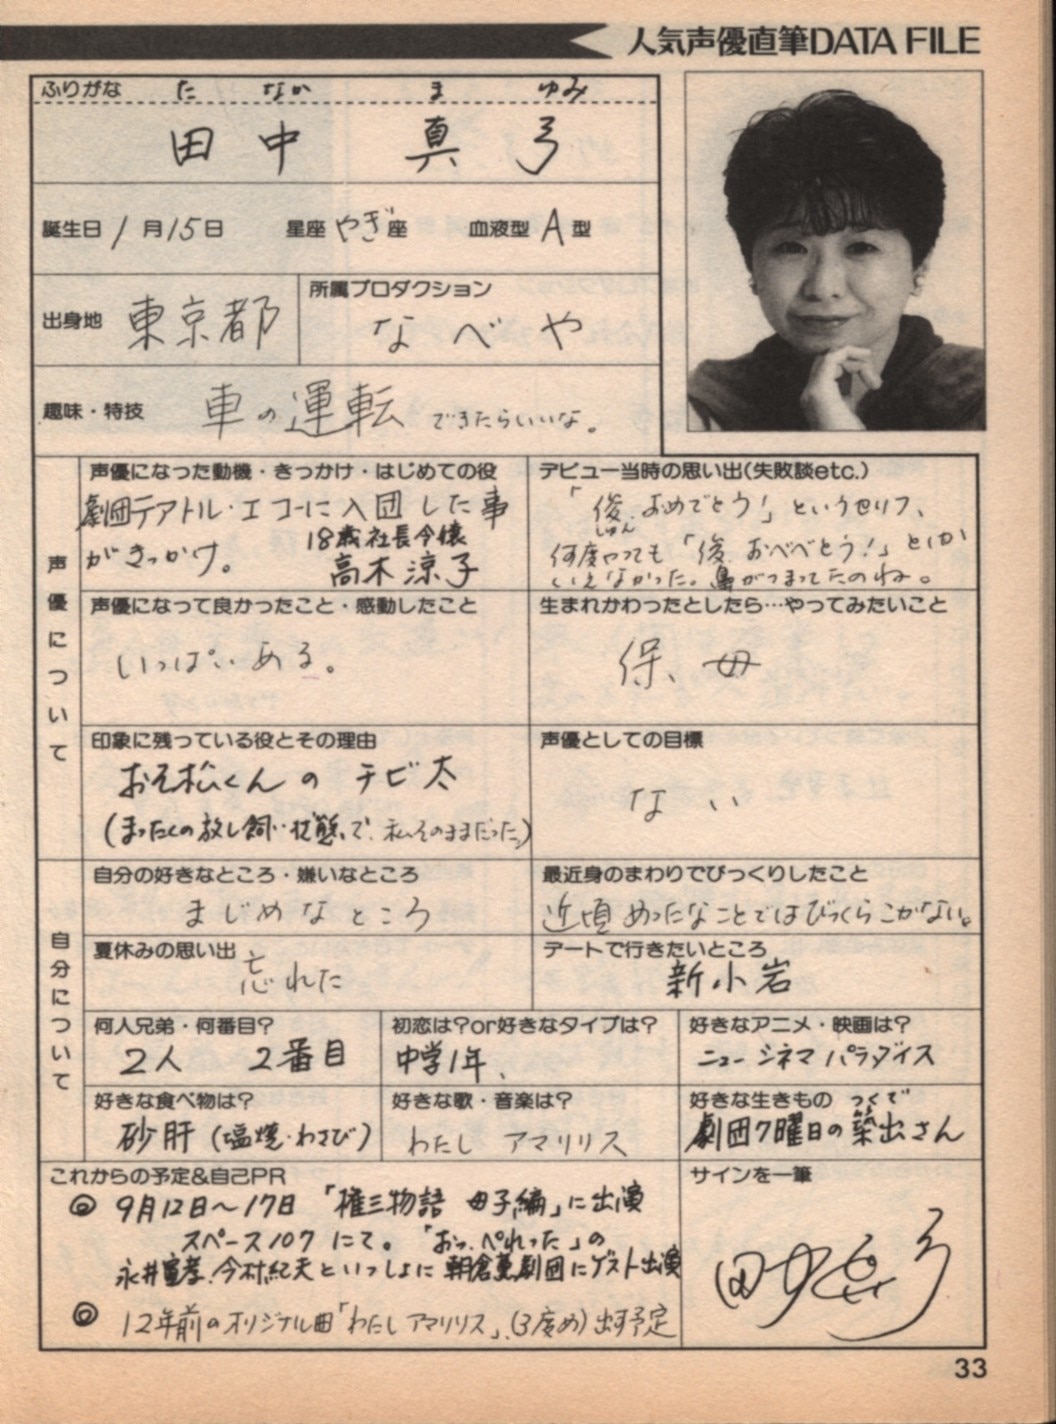 人気声優直筆DATA FILE
ふりがな た なか ま ゆみ
田中 真弓
誕生日 1月15日 星座 やぎ座 血液型 A型
出身地 東京都
所属プロダクション
なべや
趣味・特技 車の運転 できたらいいな。
声優について
声優になった動機・きっかけ・はじめての役
劇団テアトル・エコーに入団した事
がきっかけ。 18歳社長令嬢
高木涼子
デビュー当時の思い出(失敗談etc.)
「俊、おめでとう!」というセリフ、
しゅん
何度やっても「俊、おべべとう!」としか
いえなかった。鼻がつまってたのね。
声優になって良かったこと・感動したこと
いっぱいある。
生まれかわったとしたら…やってみたいこと
保母
印象に残っている役とその理由
おそ松くんの チビ太
(まったくの放し飼い状態で、私そのままだった)
声優としての目標
ない
自分について
自分の好きなところ・嫌いなところ
まじめなところ
最近身のまわりでびっくりしたこと
近頃めったなことではびっくらこかない。
夏休みの思い出
忘れた
デートで行きたいところ
新小岩
何人兄弟・何番目?
2人 2番目
初恋は?or好きなタイプは?
中学1年、
好きなアニメ・映画は?
ニューシネマパラダイス
好きな食べ物は?
砂肝(塩焼・わさび)
好きな歌・音楽は?
わたし アマリリス
好きな生きもの つくで
劇団7曜日の築出さん
これからの予定&自己PR
◎ 9月12日〜17日 「権三物語 母子編」に出演
スペース107 にて。「おっ、ぺれった」の
永井寛孝、今村紀天といっしょに 朝倉薫劇団にゲスト出演
◎ 12年前のオリジナル曲「わたしアマリリス」、(3度め)出す予定
サインを一筆
田中真弓
33